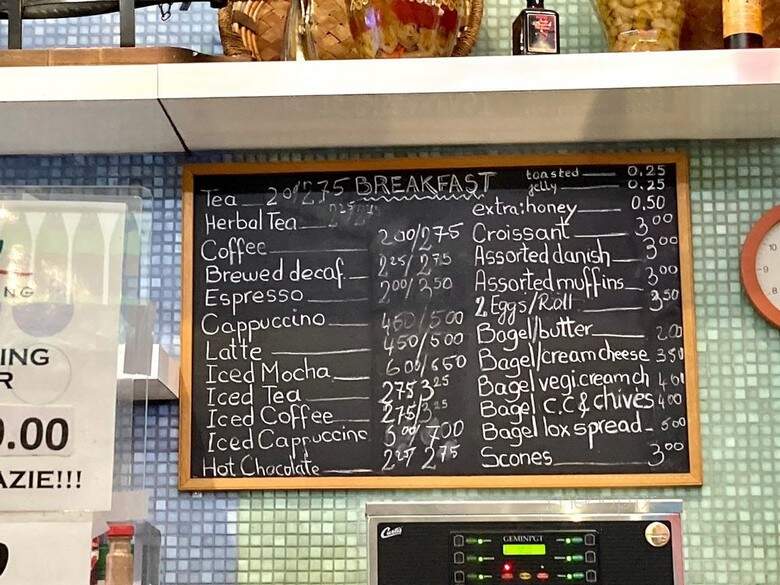 BREAKFAST
Tea 20/275
Herbal Tea
Coffee 200/275
Brewed decaf. 225/275
Espresso 200/350
Cappuccino 450/500
Latte 450/500
Iced Mocha 600/650
Iced Tea 275/325
Iced Coffee 275/325
Iced Cappuccino /700
Hot Chacolate 225/275
toasted 0.25
jelly 0.25
extra: honey 0.50
Croissant 300
Assorted danish 300
Assorted muffins 300
2 Eggs/Roll 350
Bagel/butter 200
Bagel/cream cheese 350
Bagel vegi cream ch 400
Bagel c.c & chives 400
Bagel lox spread - 500
Scones 300
NG
ING
R
.00
AZIE!!!
Curtis
GEMINPGT